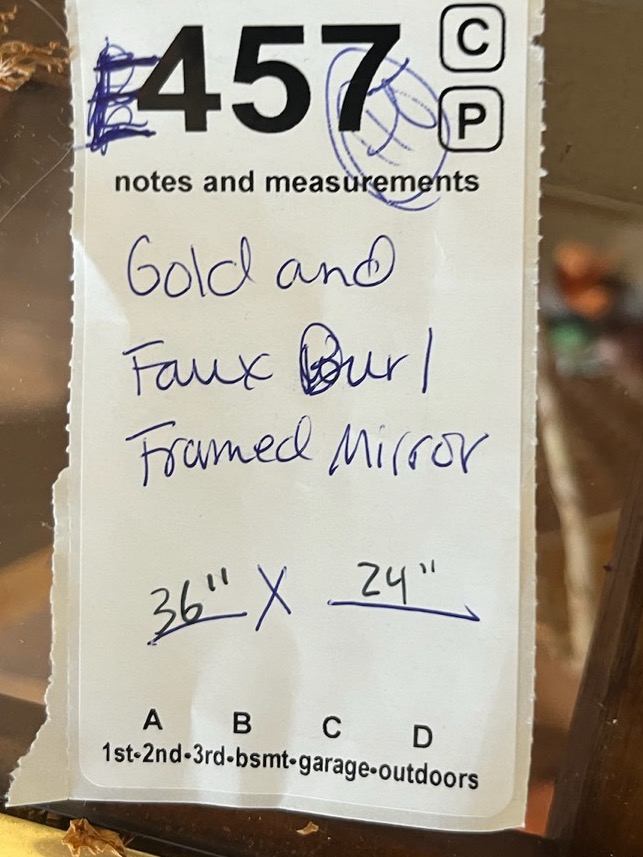 457 C
P
notes and measurements
Gold and
Faux Burl
Framed Mirror
36" X 24"
A B C D
1st•2nd•3rd•bsmt•garage•outdoors